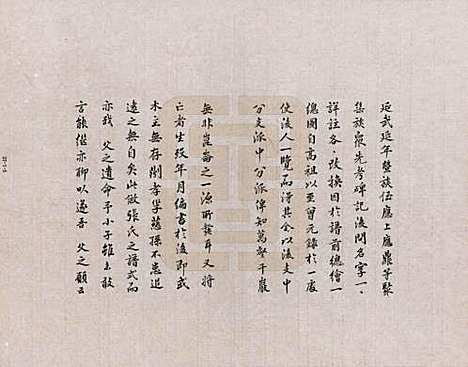 延武延年暨族伍應上應鼎等聚
集族衆先考碑記後問名字一一
詳註各改換因於譜前總繪一
總圖自高祖以至曾元錄於一處
使後人一覽而得其全以後支中
分支派中分派俾知萬壑千巖
無非崑崙之一源所發耳又將
亡者生綏年月編書於後即或
木主無存則孝孚慈孫不患追
遠之無自矣此倣張氏之譜式而
亦我父之遺命予小子雖未敢
言能繼亦聊以遂吾父之願云